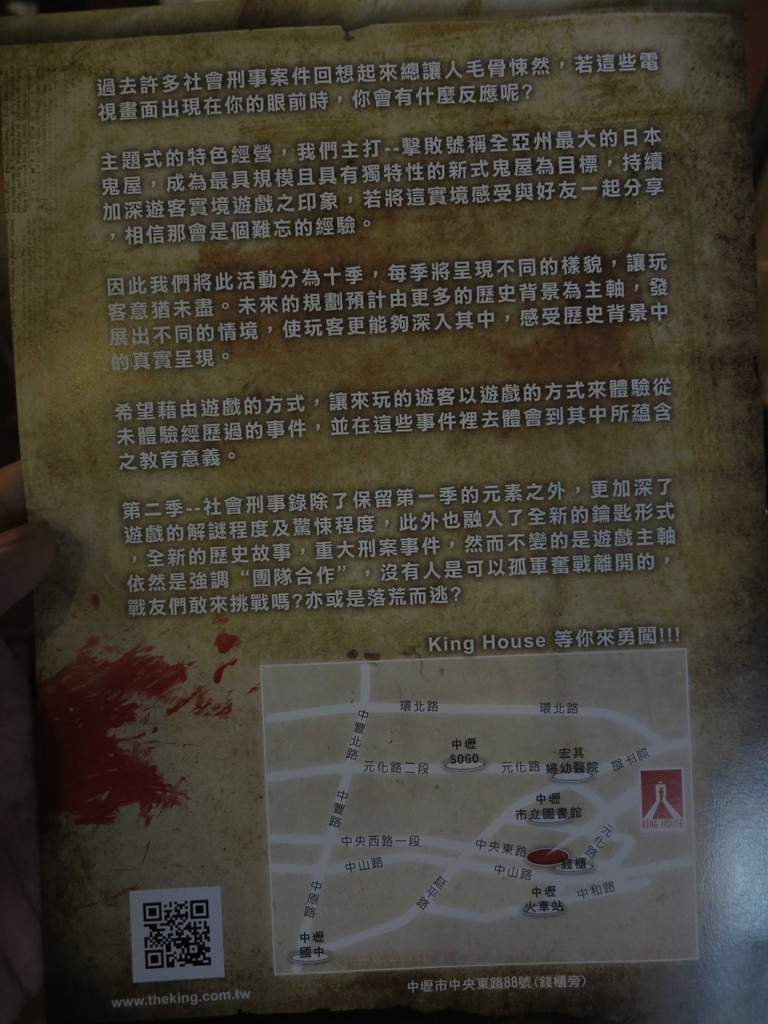 過去許多社會刑事案件回想起來總讓人毛骨悚然，若這些電
視畫面出現在你的眼前時，你會有什麼反應呢?
主題式的特色經營，我們主打--擊敗號稱全亞州最大的日本
鬼屋，成為最具規模且具有獨特性的新式鬼屋為目標，持續
加深遊客實境遊戲之印象，若將這實境感受與好友一起分享
，相信那會是個難忘的經驗。
因此我們將此活動分為十季，每季將呈現不同的樣貌，讓玩
客意猶未盡。未來的規劃預計由更多的歷史背景為主軸，發
展出不同的情境，使玩客更能夠深入其中，感受歷史背景中
的真實呈現。
希望藉由遊戲的方式，讓來玩的遊客以遊戲的方式來體驗從
未體驗經歷過的事件，並在這些事件裡去體會到其中所蘊含
之教育意義。
第二季--社會刑事錄除了保留第一季的元素之外，更加深了
遊戲的解謎程度及驚悚程度，此外也融入了全新的鑰匙形式
，全新的歷史故事，重大刑案事件，然而不變的是遊戲主軸
依然是強調“團隊合作”，沒有人是可以孤軍奮戰離開的，
戰友們敢來挑戰嗎?亦或是落荒而逃?
King House 等你來勇闖!!!
環北路
環北路
中豐北路
中壢
SOGO
元化路二段
元化路
宏其
婦幼醫院
延平路
中豐路
中壢
市立圖書館
KING HOUSE
中央西路一段
中央東路
元化路
中山路
中山路
錢櫃
延平路
中原路
中和路
中壢
火車站
中壢
國中
www.theking.com.tw
中壢市中央東路88號(錢櫃旁)